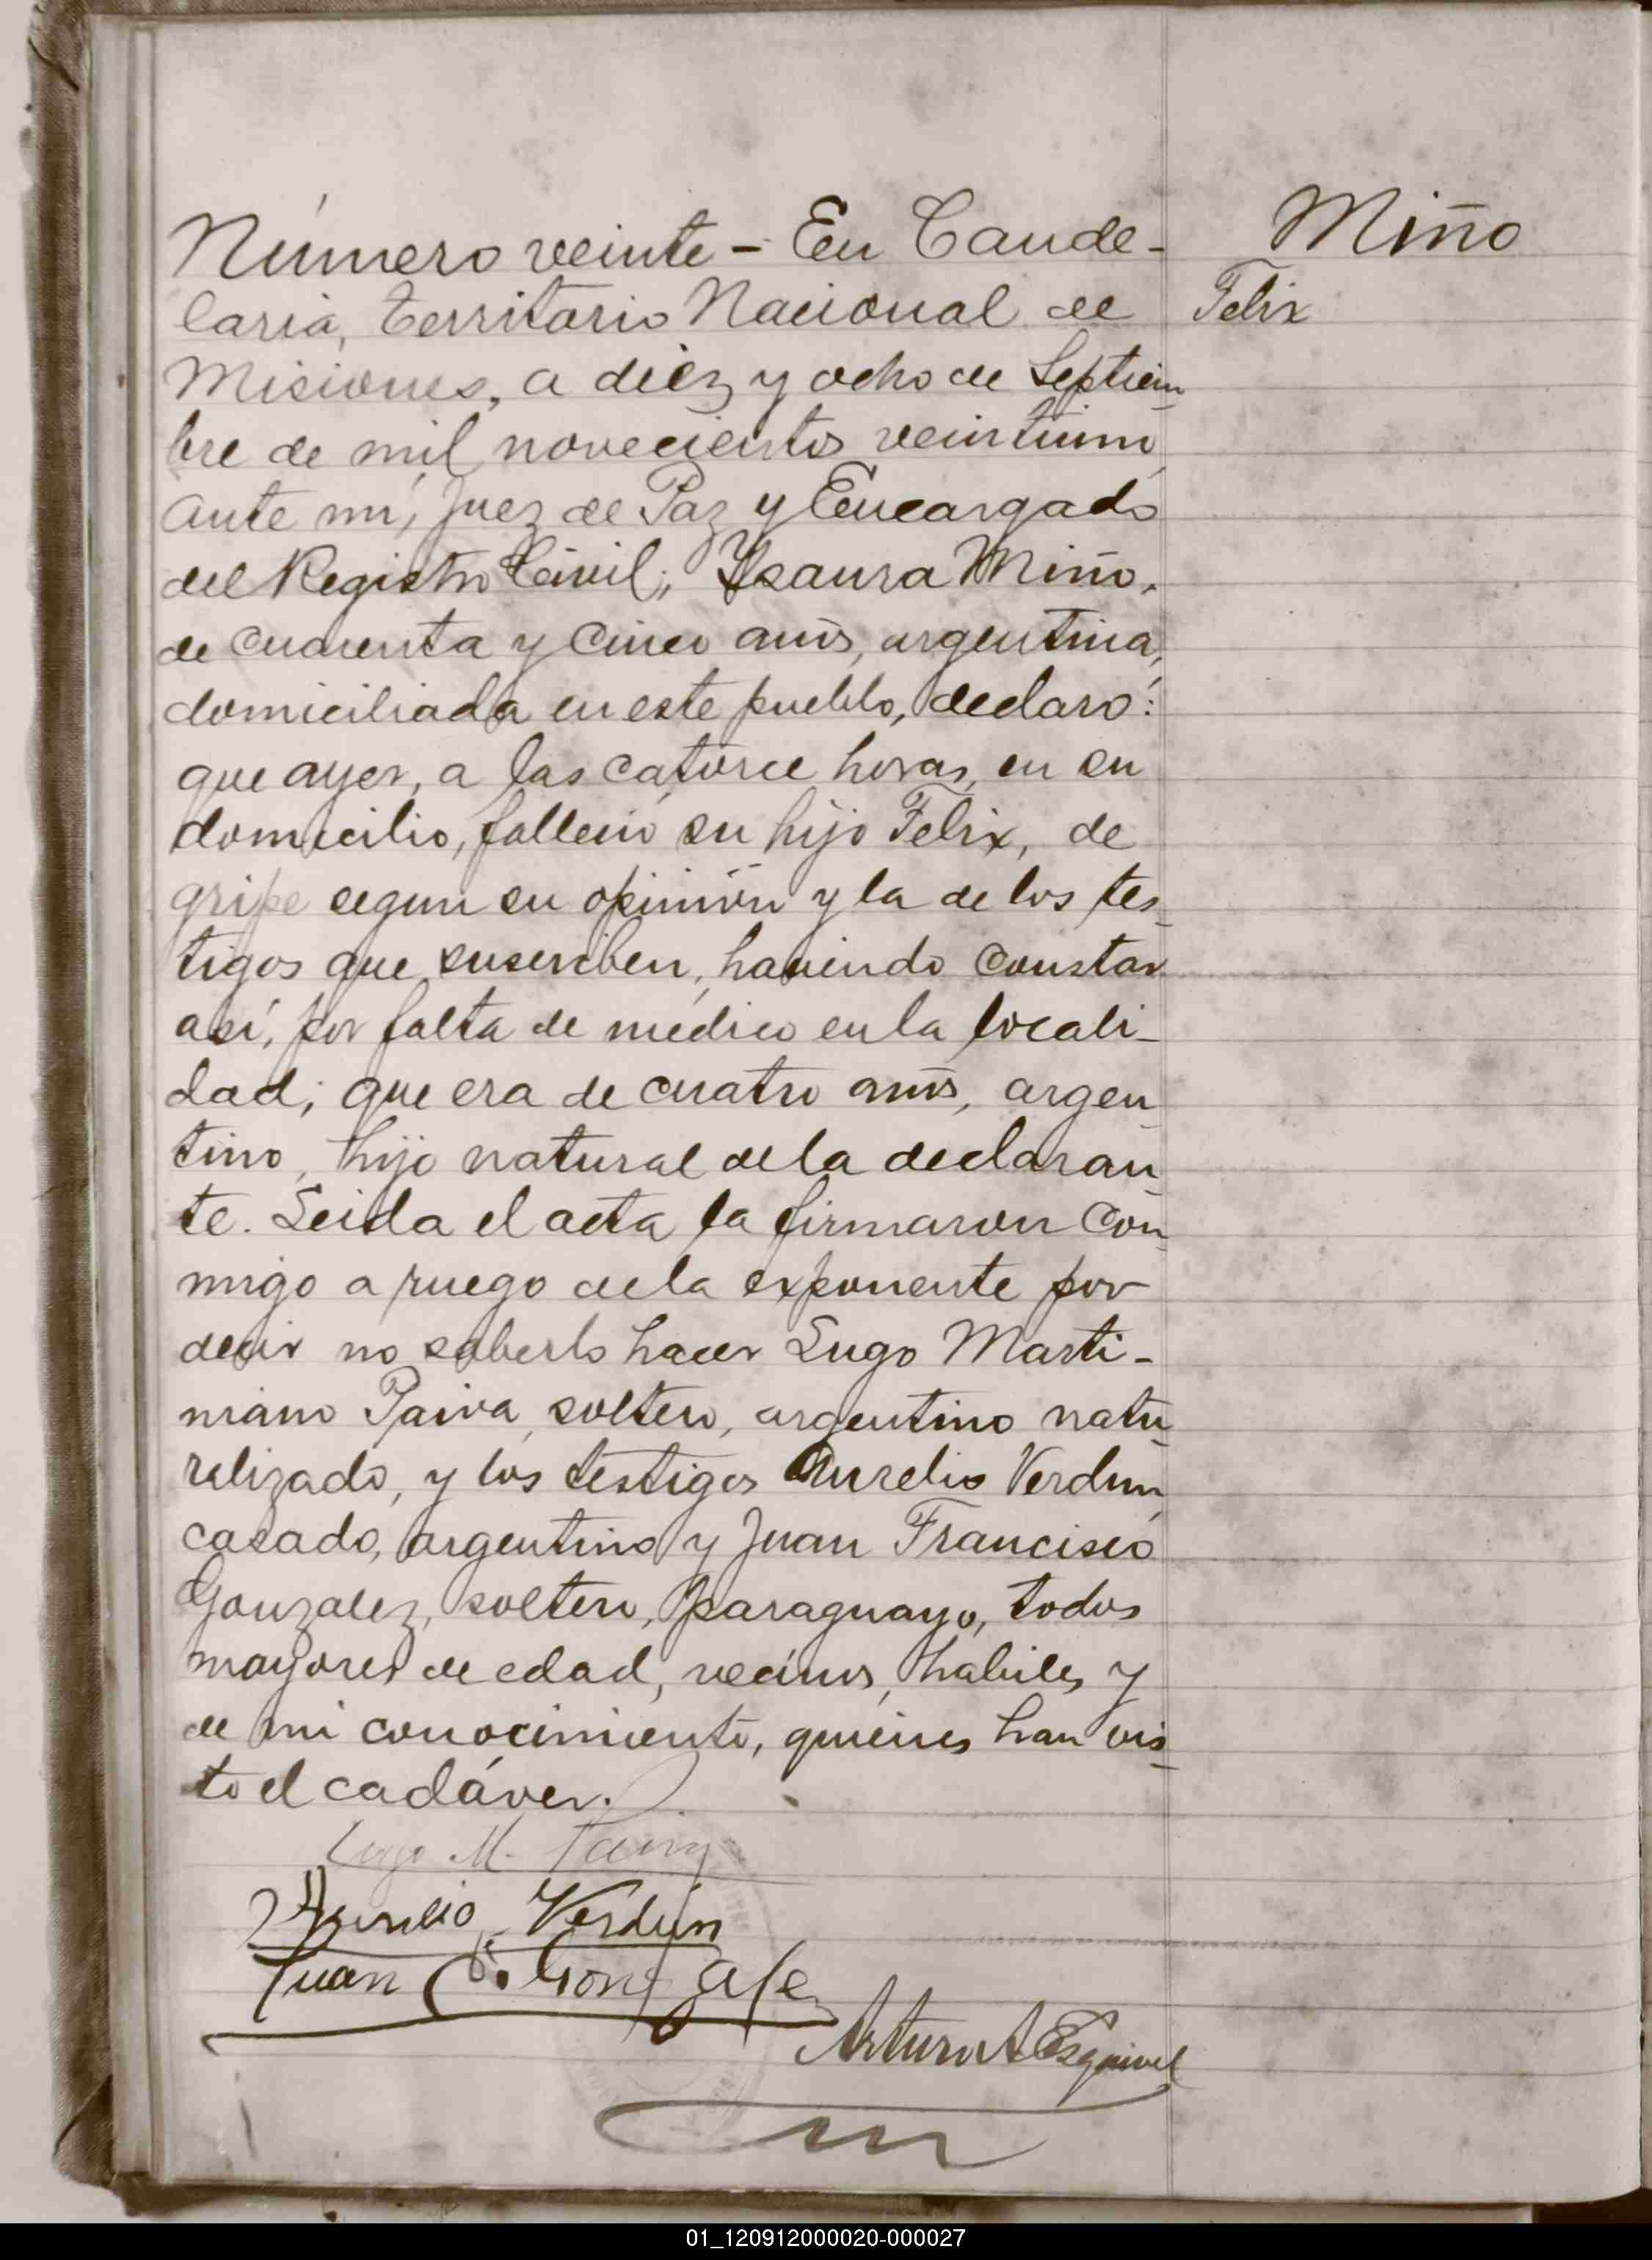 Número veinte - En Cande-
laria, Territorio Nacional de
Misiones, a diez y ocho de Septiem-
bre de mil novecientos veintiuno,
ante mi, Juez de Paz y Encargado
del Registro Civil; Ysaura Miño,
de cuarenta y cinco años, argentina,
domiciliada en este pueblo, declaró:
que ayer, a las catorce horas, en su
domicilio, falleció su hijo Felix, de
gripe segun su opinión y la de los tes-
tigos que suscriben, haciendo constar
así, por falta de médico en la locali-
dad; que era de cuatro años, argen-
tino, hijo natural de la declaran-
te. Leida el acta la firmaron con-
migo a ruego de la exponente por
decir no saberlo hacer Lugo Marti-
niano Paiva, soltero, argentino natu-
ralizado, y los testigos Aurelio Verdun,
casado, argentino y Juan Francisco
Gonzalez, soltero, paraguayo, todos
mayores de edad, vecinos, habiles y
de mi conocimiento, quienes han vis-
to el cadáver.
Lugo M. Paiva
Aurelio Verdún
Juan F. Gonzalez
Arturo A Esquivel
Miño
Felix
01_120912000020-000027